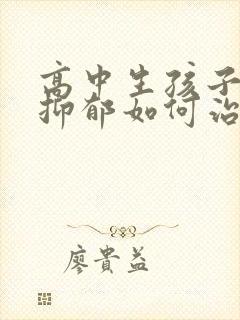 高中生孩子
抑郁如何治
廖貴益